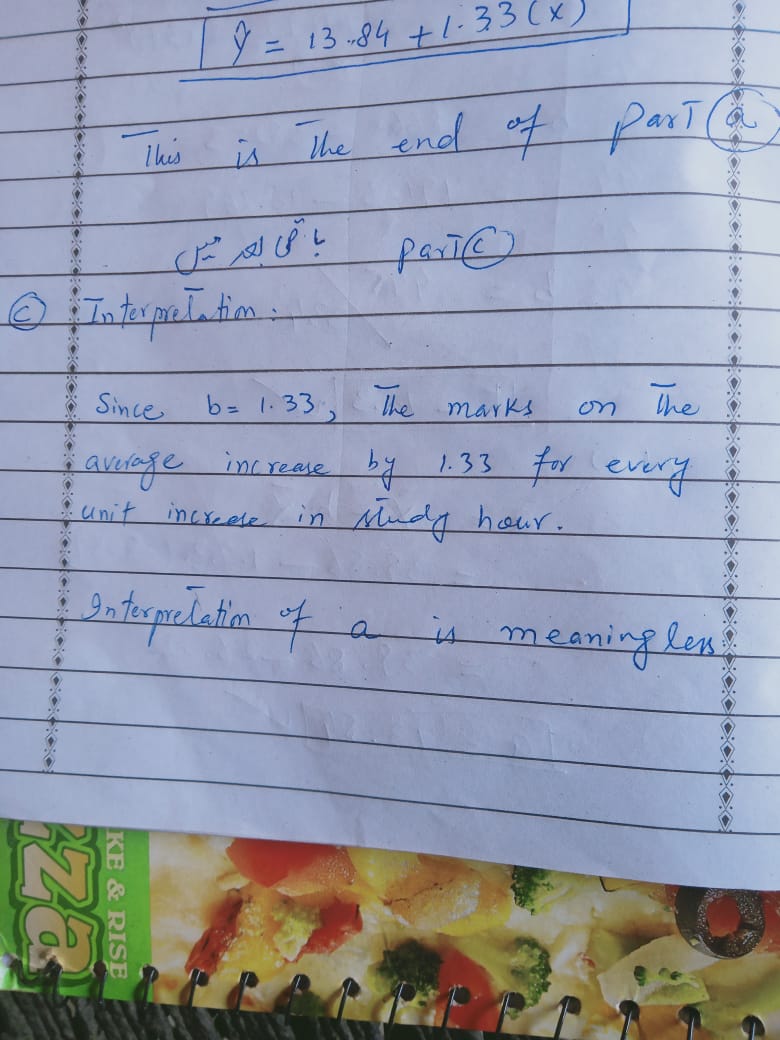 ŷ = 13.84 + 1.33 (x)
This is The end of Part (a)
باقی بعد میں Part (c)
(c) Interpretation :
Since b= 1.33, The marks on The
average increase by 1.33 for every
unit increase in study hour.
Interpretation of a is meaningless
KE & RISE
zza